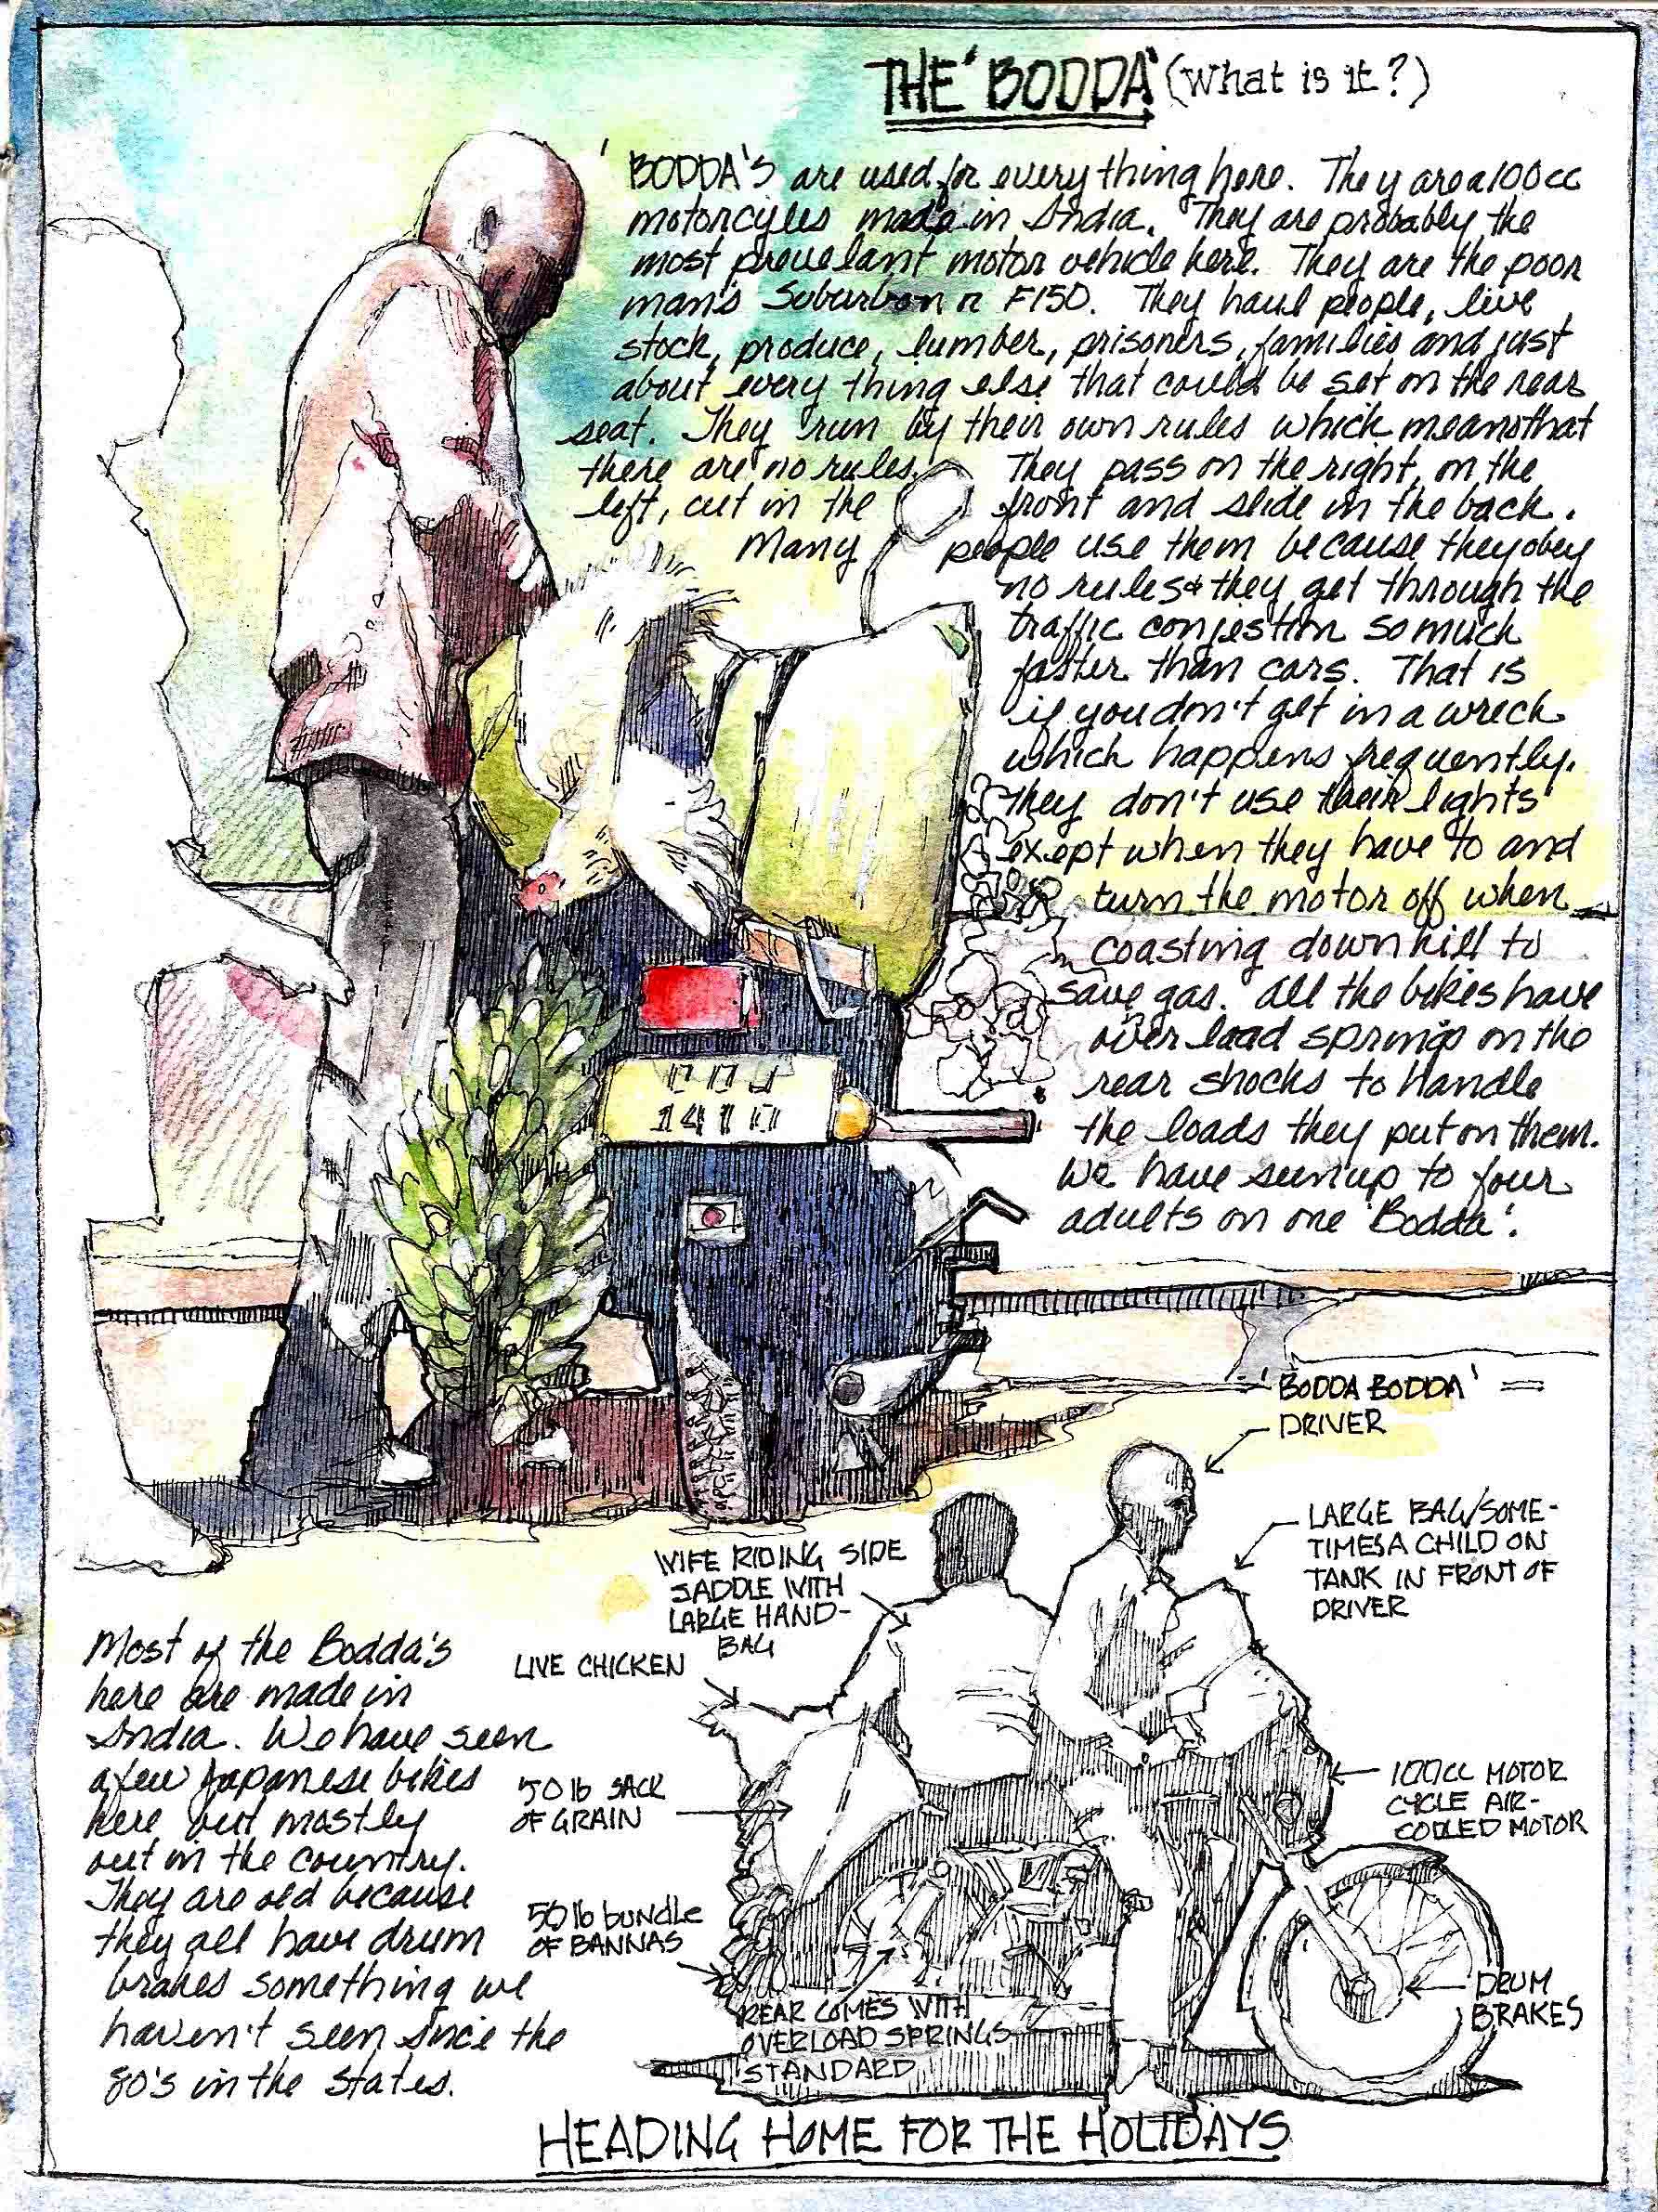 THE 'BODDA' (What is it?)
'BODDA'S are used for every thing here. They are a 100cc
motorcyles made in India. They are probably the
most prevelant motor vehicle here. They are the poor
man's Suburban or F150. They haul people, live
stock, produce, lumber, prisoners, families and just
about every thing else that could be set on the rear
seat. They run by their own rules which means that
there are no rules. They pass on the right, on the
left, cut in the front and slide in the back.
Many people use them because they obey
no rules & they get through the
traffic conjestion so much
faster than cars. That is
if you don't get in a wreck
which happens frequently.
They don't use their lights
except when they have to and
turn the motor off when
coasting down hill to
save gas. All the bikes have
over load springs on the
rear shocks to handle
the loads they put on them.
We have seen up to four
adults on one 'Bodda'.
1410
'BODDA BODDA'
DRIVER
LARGE BAG/SOME-
TIMES A CHILD ON
TANK IN FRONT OF
DRIVER
WIFE RIDING SIDE
SADDLE WITH
LARGE HAND-
BAG
LIVE CHICKEN
50 lb SACK
OF GRAIN
50 lb bundle
OF BANNAS
REAR COMES WITH
OVERLOAD SPRINGS
STANDARD
100cc MOTOR
CYCLE AIR-
COOLED MOTOR
DRUM
BRAKES
Most of the Bodda's
here are made in
India. We have seen
a few Japanese bikes
here but mostly
out in the country.
They are old because
they all have drum
brakes something we
haven't seen since the
80's in the states.
HEADING HOME FOR THE HOLIDAYS